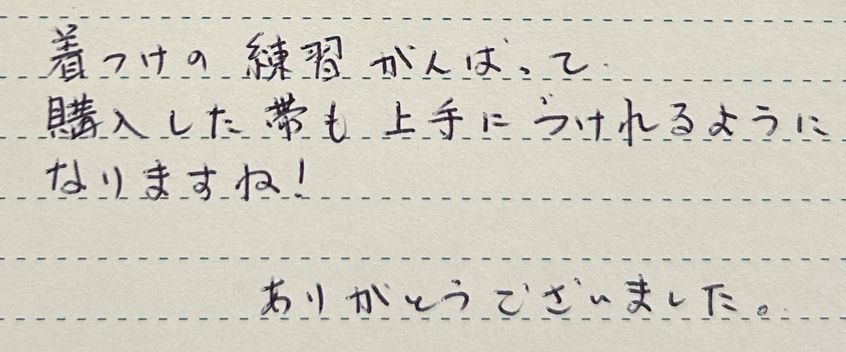 着つけの練習がんばって
購入した帯も上手につけれるように
なりますね!
ありがとうございました。